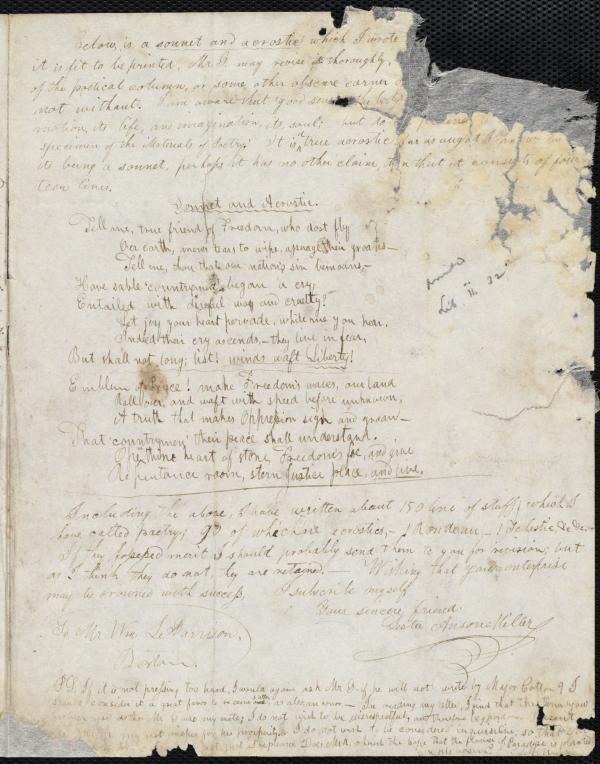 Below, is a sonnet and acrostic which I wrote
it is fit to be printed, Mr. G. may revise it thoroughly,
of the poetical column, or some other obscure corner
not without. I am aware that good
its life, an imagination, its soul; but
specimen of the Materials of Poetry. It is a true acrostic as aught I know
its being a sonnet, perhaps it has no other claim, than that it consists of four
teen lines.
Sonnet and Acrostic.
Tell me, true friend of Freedom, who dost fly
Our earth, mens tears to wipe, asuage their groans—
Tell me, thou that our nation's sin bemoans,—
Have sable countrymen began a cry
Entailed with direful way and cruelty?
Let joy your heart pervade, while me you hear,
Indeed their cry ascends,—they live in fear,
But shall not long; list! winds waft Liberty!
Emblem of Peace! make Freedom's waves, our land
Roll over, and waft with speed before unknown,
A truth that makes Oppression sigh and groan—
That 'countrymen' their peace shall understand.
Ope thine heart of stone, Freedom's foe, and give
Repentance room, stern Justice place, and live.
Printed
Lib. II. 32
Including the above, I have written about 150 line of stuff, which I
have called poetry; 90 of which are acrostics,— 1 Rondeau,— 1
If they possessed merit I should probably send them to you for revision; but
as I think they do not, they are retained.— Wishing that your enterprise
may be crowned with success, I subscribe myself
Your sincere friend.
To Mr. Wm. L. Garrison,
Boston.
P.S. If it is not pressing too hard, I would again ask Mr. G. if he will not write by Major Colton? I
should consider it a great favor to receive as also an hour — on reading my letter, I find that
I do not wish to be disrespectful, and therefore beg pardon
for his prosperity. I do not wish to be considered
the hope that the flower of Paradise is